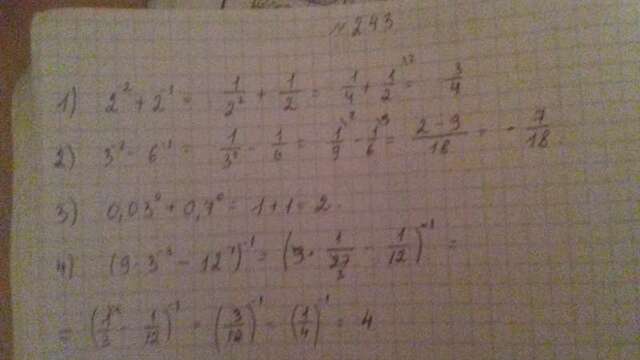 №243
1) 2⁻² + 2⁻¹ = 1/2² + 1/2 = 1/4 + 1/2^\2 = 3/4
2) 3⁻² - 6⁻¹ = 1/3² - 1/6 = 1/9^\2 - 1/6^\3 = (2-9)/18 = - 7/18
3) 0,03⁰ + 0,7⁰ = 1 + 1 = 2.
4) (9 · 3⁻³ - 12⁻¹)⁻¹ = (9 · 1/27 - 1/12)⁻¹ =
= (1/3^\4 - 1/12)⁻¹ = (3/12)⁻¹ = (1/4)⁻¹ = 4